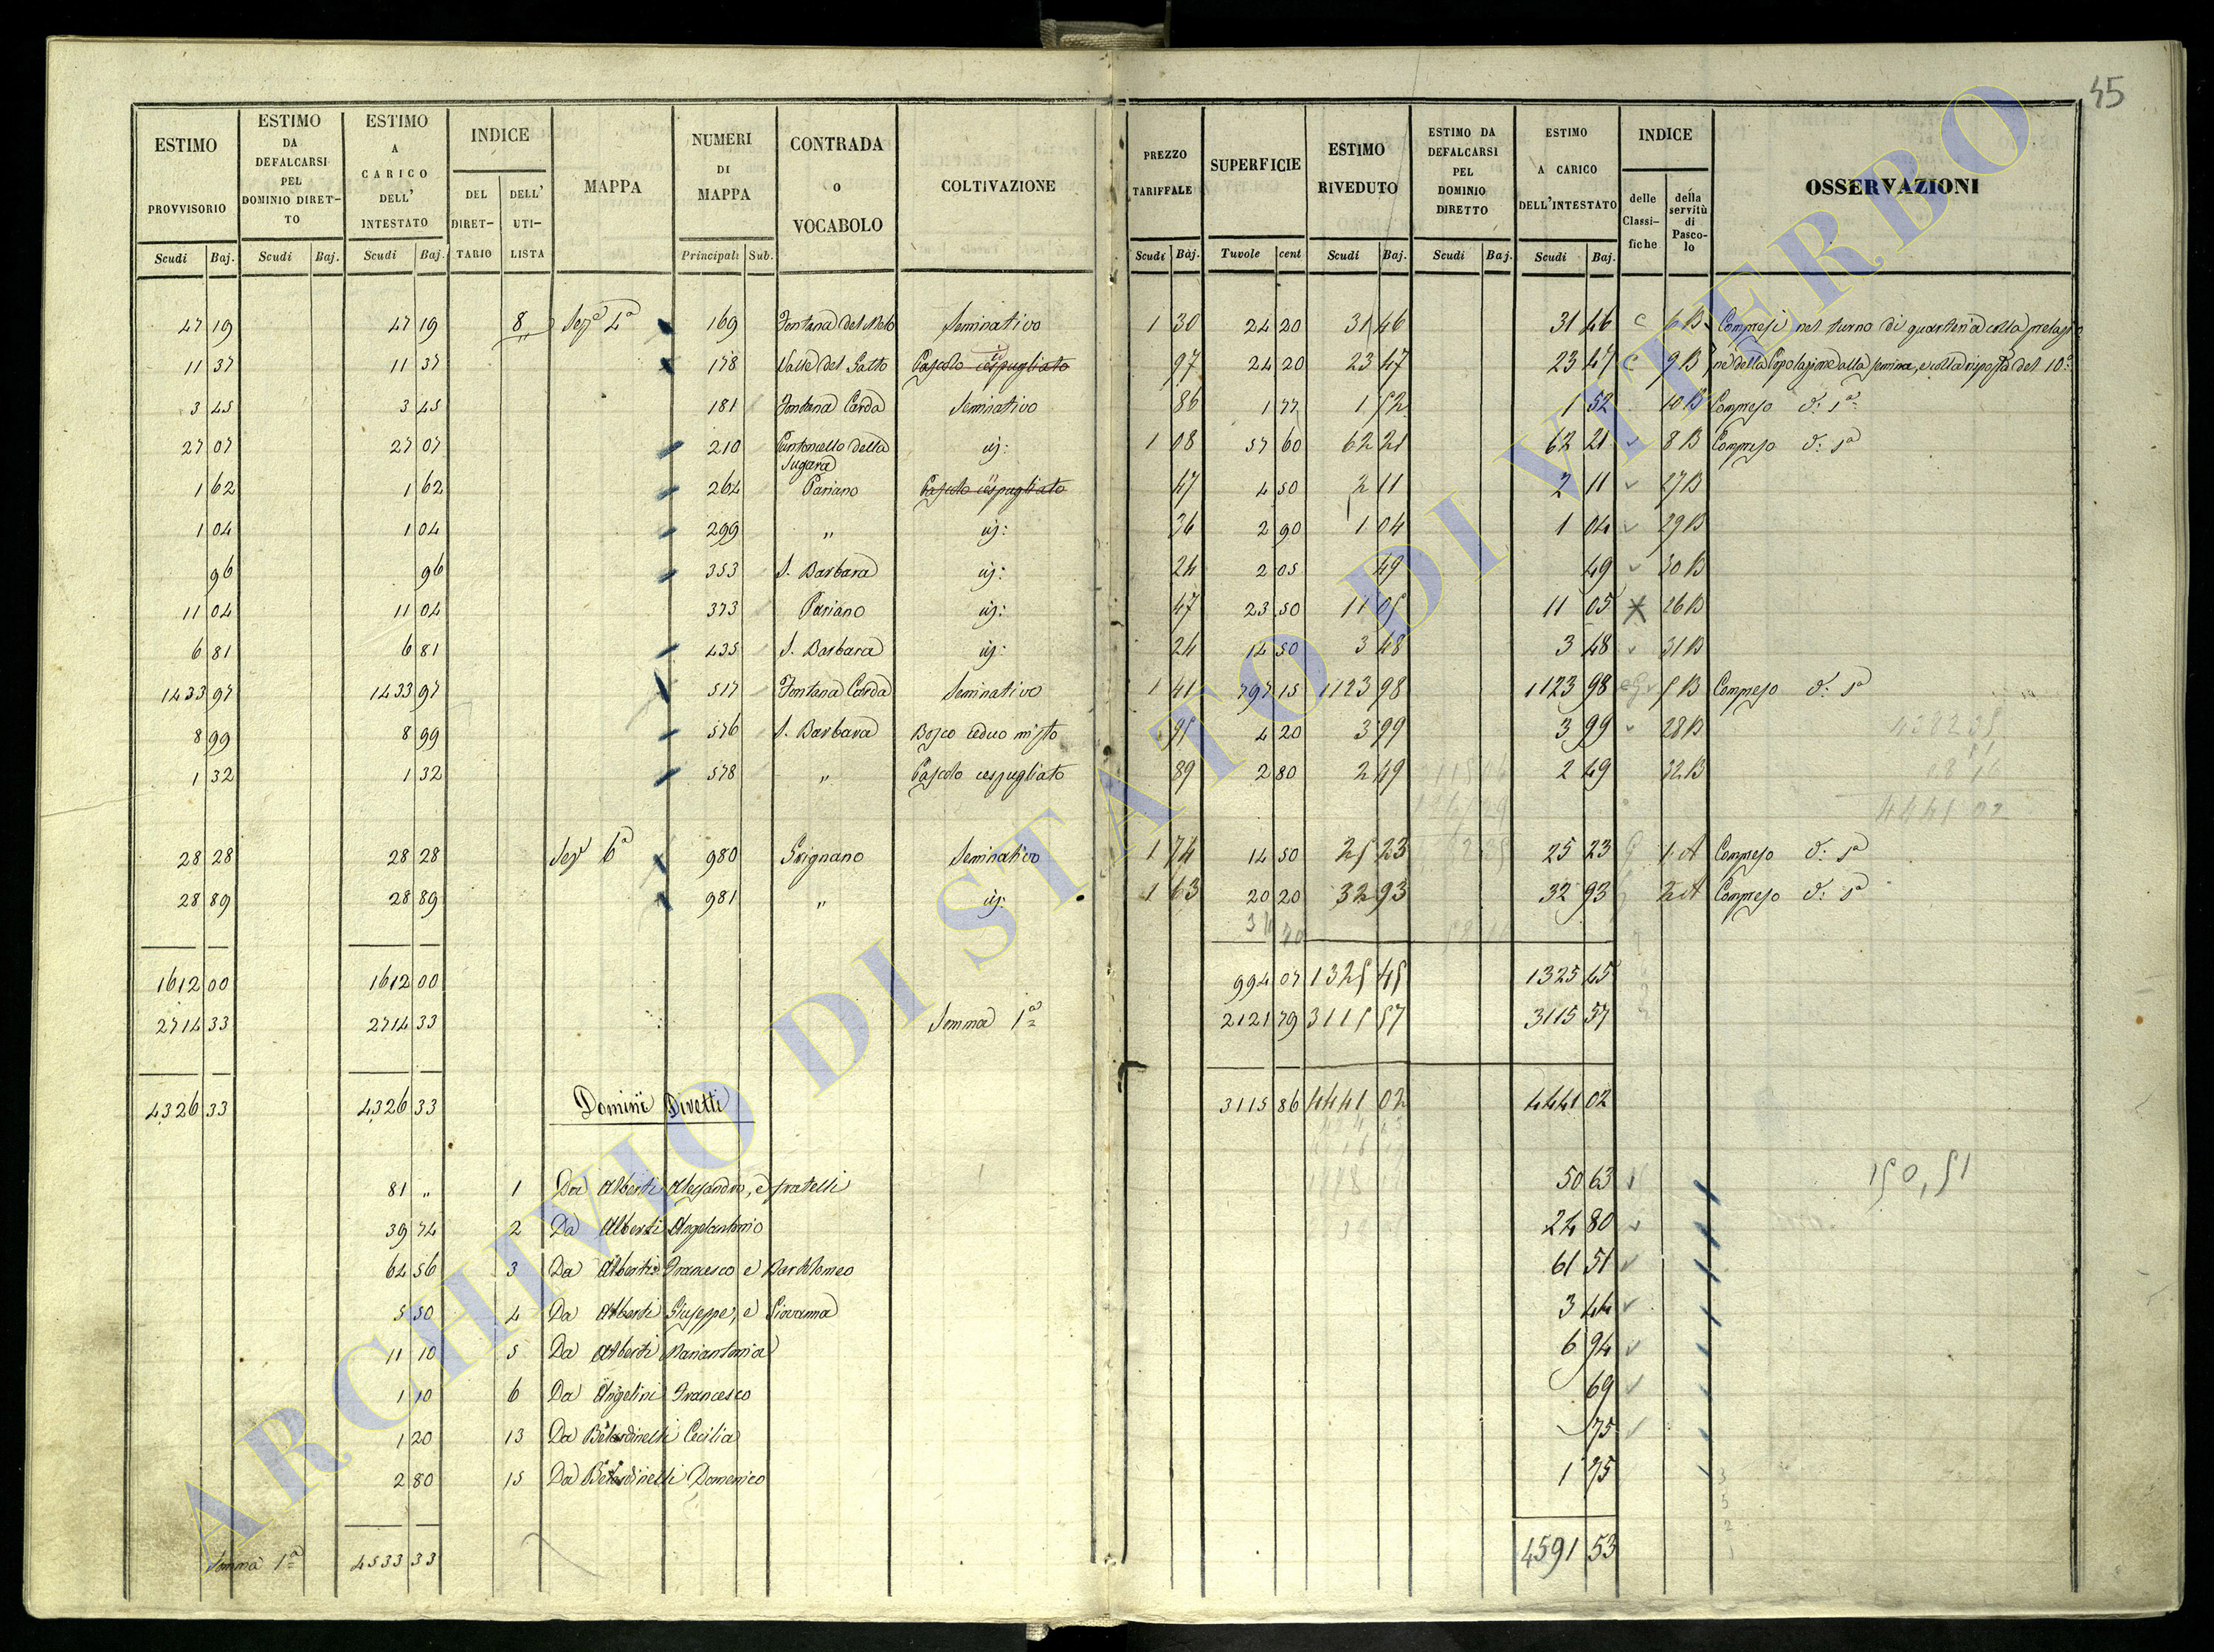 45
ESTIMO PROVVISORIO | ESTIMO DA DEFALCARSI PEL DOMINIO DIRETTO | ESTIMO A CARICO DELL' INTESTATO | INDICE DEL DIRETTARIO | DELL' UTILISTA | MAPPA | NUMERI DI MAPPA | CONTRADA o VOCABOLO | COLTIVAZIONE | PREZZO TARIFFALE | SUPERFICIE | ESTIMO RIVEDUTO | ESTIMO DA DEFALCARSI PEL DOMINIO DIRETTO | ESTIMO A CARICO DELL'INTESTATO | INDICE delle Classifiche | della servitù di Pascolo | OSSERVAZIONI
Scudi | Baj. | Scudi | Baj. | Scudi | Baj. | Principali | Sub. | Scudi | Baj. | Tuvole | cent | Scudi | Baj. | Scudi | Baj. | Scudi | Baj.
47 19 | 47 19 | 8 | Sez.e 4a | 169 | Fontana del Melo | Seminativo | 1 30 | 24 20 | 31 46 | 31 46 | C | 6 B | Compresi nel turno di quarteria colla prelazio
11 37 | 11 37 | 178 | Valle del Gatto | Pascolo cespugliato | 97 | 24 20 | 23 47 | 23 47 | C | 9 B | ne della Popolazione alla semina, e colla risposta del 10:
3 45 | 3 45 | 181 | Fontana Carda | Seminativo | 86 | 1 77 | 1 52 | 1 52 | 10 B | Compreso d: sa
27 07 | 27 07 | 210 | Cantoncello della Sugara | id: | 1 08 | 57 60 | 62 21 | 62 21 | 8 B | Compreso d: sa
1 62 | 1 62 | 264 | Pariano | Pascolo cespugliato | 47 | 4 50 | 2 11 | 2 11 | 27 B
1 04 | 1 04 | 299 | " | id: | 36 | 2 90 | 1 04 | 1 04 | 29 B
96 | 96 | 353 | S. Barbara | id: | 24 | 2 05 | 49 | 49 | 30 B
11 04 | 11 04 | 373 | Pariano | id: | 47 | 23 50 | 11 05 | 11 05 | 26 B
6 81 | 6 81 | 435 | S. Barbara | id: | 24 | 14 50 | 3 48 | 3 48 | 31 B
1433 97 | 1433 97 | 517 | Fontana Carda | Seminativo | 1 41 | 797 15 | 1123 98 | 1123 98 | 5 B | Compreso d: sa
8 99 | 8 99 | 576 | S. Barbara | Bosco ceduo misto | 95 | 4 20 | 3 99 | 3 99 | 28 B
1 32 | 1 32 | 578 | " | Pascolo cespugliato | 89 | 2 80 | 2 49 | 2 49 | 32 B
4441 02
28 28 | 28 28 | Sez.e 6a | 980 | Grignano | Seminativo | 1 74 | 14 50 | 25 23 | 25 23 | 1 A | Compreso d: sa
28 89 | 28 89 | 981 | " | id: | 1 63 | 20 20 | 32 93 | 32 93 | 2 A | Compreso d: sa
1612 00 | 1612 00 | 994 07 | 1325 45 | 1325 45
2714 33 | 2714 33 | Somma 1a | 2121 79 | 3115 57 | 3115 57
4326 33 | 4326 33 | Dominii Diretti | 3115 86 | 4441 02 | 4441 02
81 " | 1 | Da Alberti Alessandro, e fratelli | 50 63 | 150,51
39 74 | 2 | Da Alberti Angelantonio | 24 80
64 56 | 3 | Da Alberti Francesco e Bartolomeo | 61 51
5 50 | 4 | Da Alberti Giuseppe, e Giovanna | 3 44
11 10 | 5 | Da Alberti Mariantonia | 6 94
1 10 | 6 | Da Angelini Francesco | 69
1 20 | 13 | Da Belardinelli Cecilia | 75
2 80 | 15 | Da Belardinelli Domenico | 1 75
Somma 1a | 4533 33 | 4591 53
ARCHIVIO DI STATO DI VITERBO